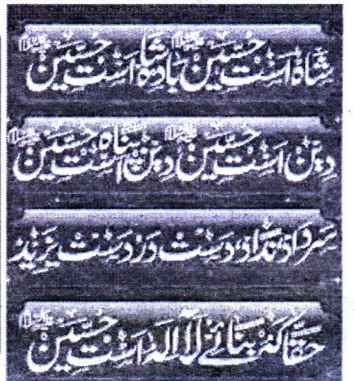 شاہ است حسین بادشاہ است حسین
دین است حسین دین پناہ است حسین
سرداد نداد دست در دست یزید
حقا کہ بنائے لا الہ است حسین